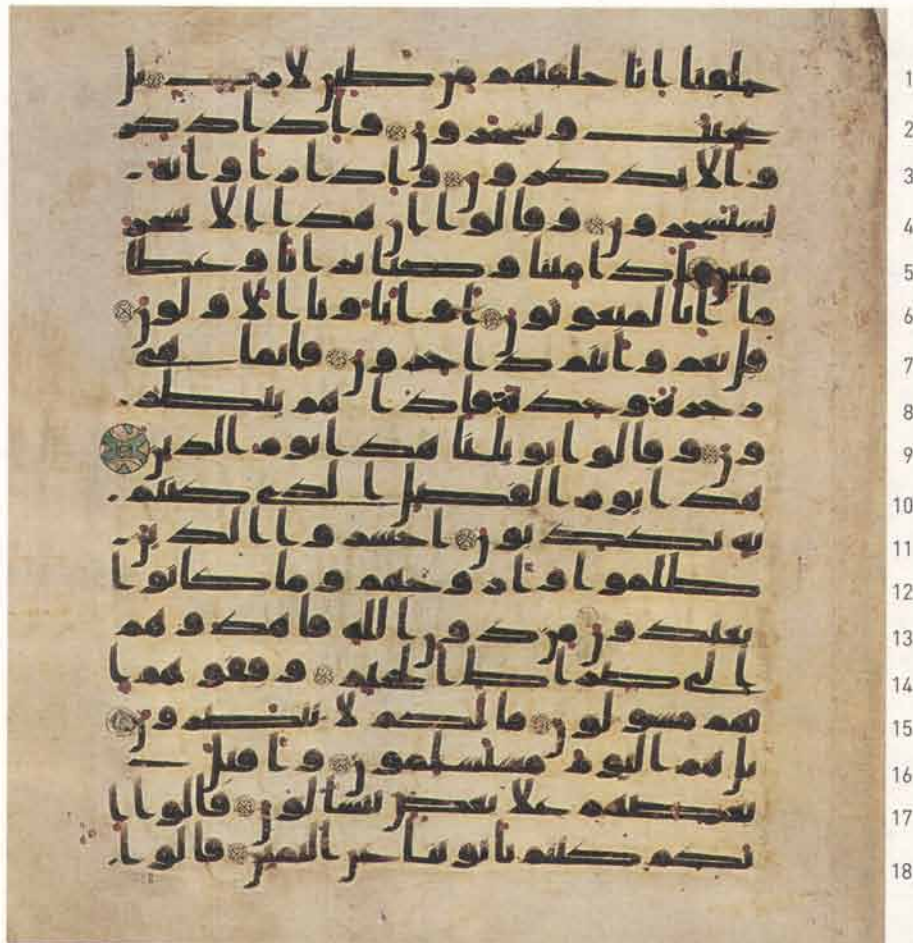 خلقنا انا خلقنهم من طين لازب بل 1
عجبت ويسخرون واذا ذكر 2
وا لا يذكرون واذا راوا ايه 3
يستسخرون وقالوا ان هذا الا سحر 4
مبين اذا متنا وكنا ترابا وعظا 5
ما انا لمبعوثون او اباونا الاولون 6
قل نعم وانتم داخرون فانما هي 7
زجرة وحدة فاذا هم ينظر 8
ون وقالوا يويلنا هذا يوم الدين 9
هذا يوم الفصل الذي كنتم 10
به تكذبون احشروا الذين 11
ظلموا وازوجهم وما كانوا 12
يعبدون من دون الله فاهدوهم 13
الى صراط الجحيم وقفوهم ا 14
نهم مسولون ما لكم لا تنصرون 15
بل هم اليوم مستسلمون واقبل 16
بعضهم علا بعض يتسالون قالوا ا 17
نكم كنتم تاتوننا عن اليمين قالوا 18